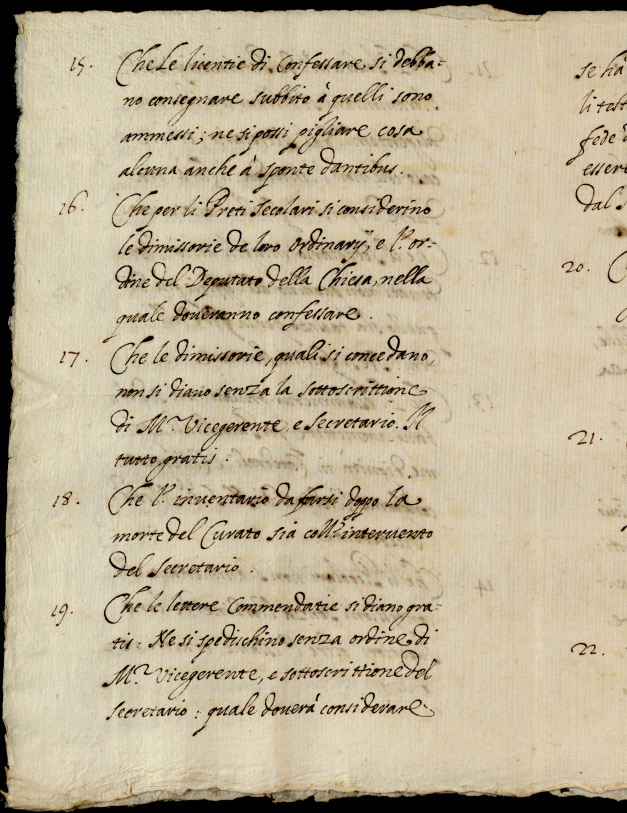 15. Che Le licentie di Confessare si debba=
no consegnare subbito à quelli sono
ammessi; ne si possi pigliare cosa
alcuna anche à sponte dantibus.
16. Che per li Preti Secolari si considerino
le dimissorie de loro ordinarij, e l'or-
dine del Deputato della Chiesa, nella
quale doveranno confessare.
17. Che le dimissorie, quali si concedano,
non si diano senza la sottoscrittione
di Mr. Vicegerente, e Secretario. Il
tutto gratis.
18. Che l'inventario da farsi doppo la
morte del Curato sia coll'intervento
del Secretario.
19. Che le lettere Commendatie si diano gra=
tis: Ne si spedischino senza ordine di
Mr. Vicegerente, e sottoscrittione del
Secretario: quale doverà considerare
se hà
li test
fede
essere
dal
20.
21.
22.